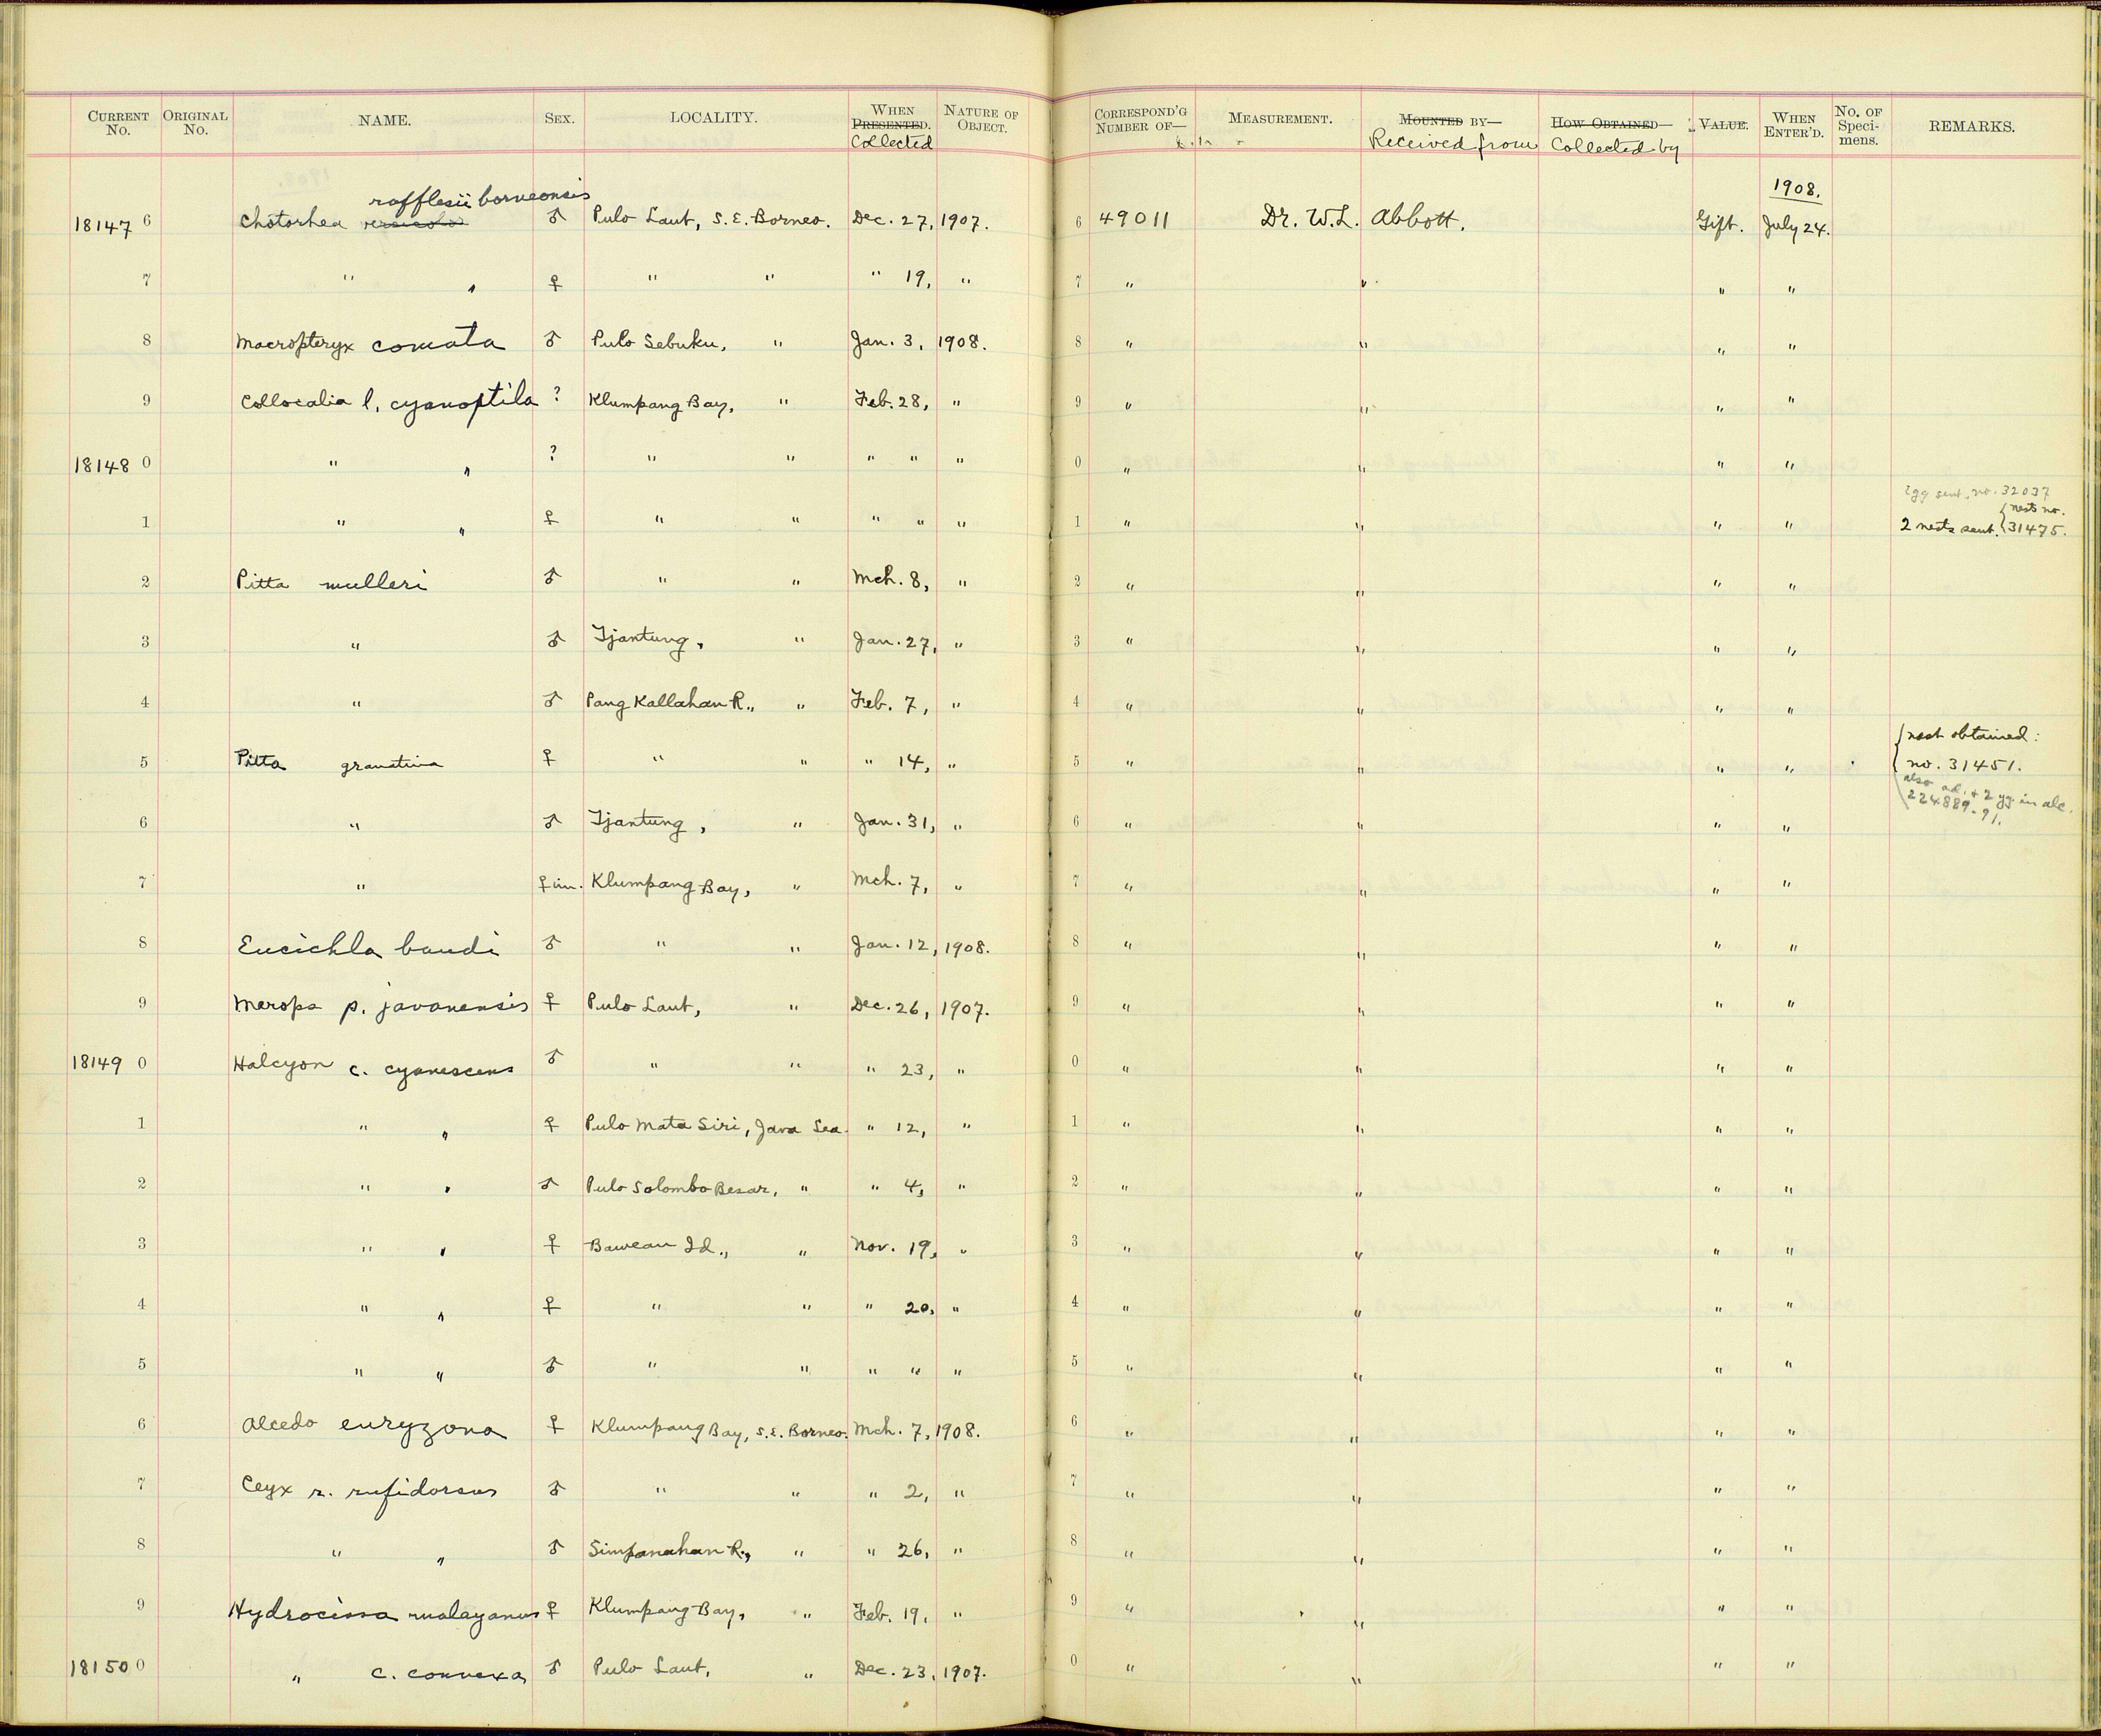 CURRENT No. ORIGINAL No. NAME. SEX. LOCALITY. WHEN PRESENTED. Collected NATURE OF OBJECT. CORRESPOND'G NUMBER OF— MEASUREMENT. MOUNTED BY— Received from HOW OBTAINED— Collected by VALUE. WHEN ENTER'D. No. OF Speci-mens. REMARKS.
1908.
rafflesii borneonsis
18147 6 Chotorhea versicolor ♂ Pulo Laut, S.E. Borneo. Dec. 27, 1907. 6 49011 Dr. W.L. Abbott. Gift. July 24.
7 " " ♀ " " " 19, " 7 " " " "
8 Macropteryx comata ♂ Pulo Sebuku, " Jan. 3, 1908. 8 " " " "
9 Collocalia l. cyanoptila ? Klumpang Bay, " Feb. 28, " 9 " " " "
18148 0 " " ? " " " " " 0 " " " "
Egg sent, no. 32037
1 " " ♀ " " " " " 1 " " " " 2 nests sent. { nests no. 31475.
2 Pitta mulleri ♂ " " Mch. 8, " 2 " " " "
3 " ♂ Tjantung, " Jan. 27, " 3 " " " "
4 " ♂ Pang Kallahan R., " Feb. 7, " 4 " " " "
5 Pitta granatina ♀ " " " 14, " 5 " " " " { nest obtained: no. 31451.
also ad. + 2 yg. in alc. 224889-91.
6 " ♂ Tjantung, " Jan. 31, " 6 " " " "
7 " ♀ im. Klumpang Bay, " Mch. 7, " 7 " " " "
8 Eucichla baudi ♂ " " Jan. 12, 1908. 8 " " " "
9 Merops p. javanensis ♀ Pulo Laut, " Dec. 26, 1907. 9 " " " "
18149 0 Halcyon c. cyanescens ♂ " " " 23, " 0 " " " "
1 " " ♀ Pulo Mata Siri, Java Sea. " 12, " 1 " " " "
2 " " ♂ Pulo Solombo Besar, " " 4, " 2 " " " "
3 " " ♀ Bawean Id., " Nov. 19, " 3 " " " "
4 " " ♀ " " " 20, " 4 " " " "
5 " " ♂ " " " " " 5 " " " "
6 Alcedo euryzona ♀ Klumpang Bay, S.E. Borneo. Mch. 7, 1908. 6 " " " "
7 Ceyx r. rufidorsus ♂ " " " 2, " 7 " " " "
8 " " ♂ Simpanahan R., " " 26, " 8 " " " "
9 Hydrocissa malayanus ♀ Klumpang Bay, " Feb. 19, " 9 " " " "
18150 0 " c. convexa ♂ Pulo Laut, " Dec. 23, 1907. 0 " " " "